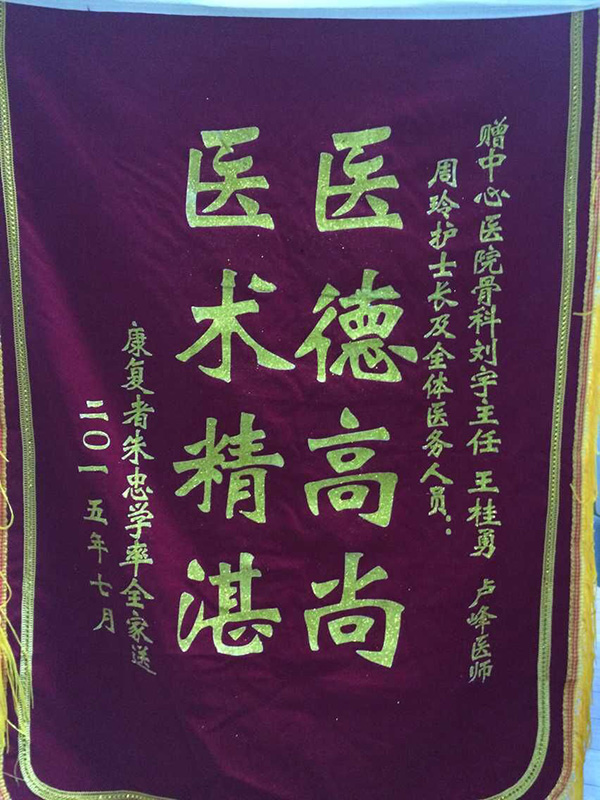 赠中心医院骨科刘宇主任 王桂勇 卢峰医师
周玲护士长及全体医务人员：
医德高尚
医术精湛
康复者朱忠学率全家送
二〇一五年七月